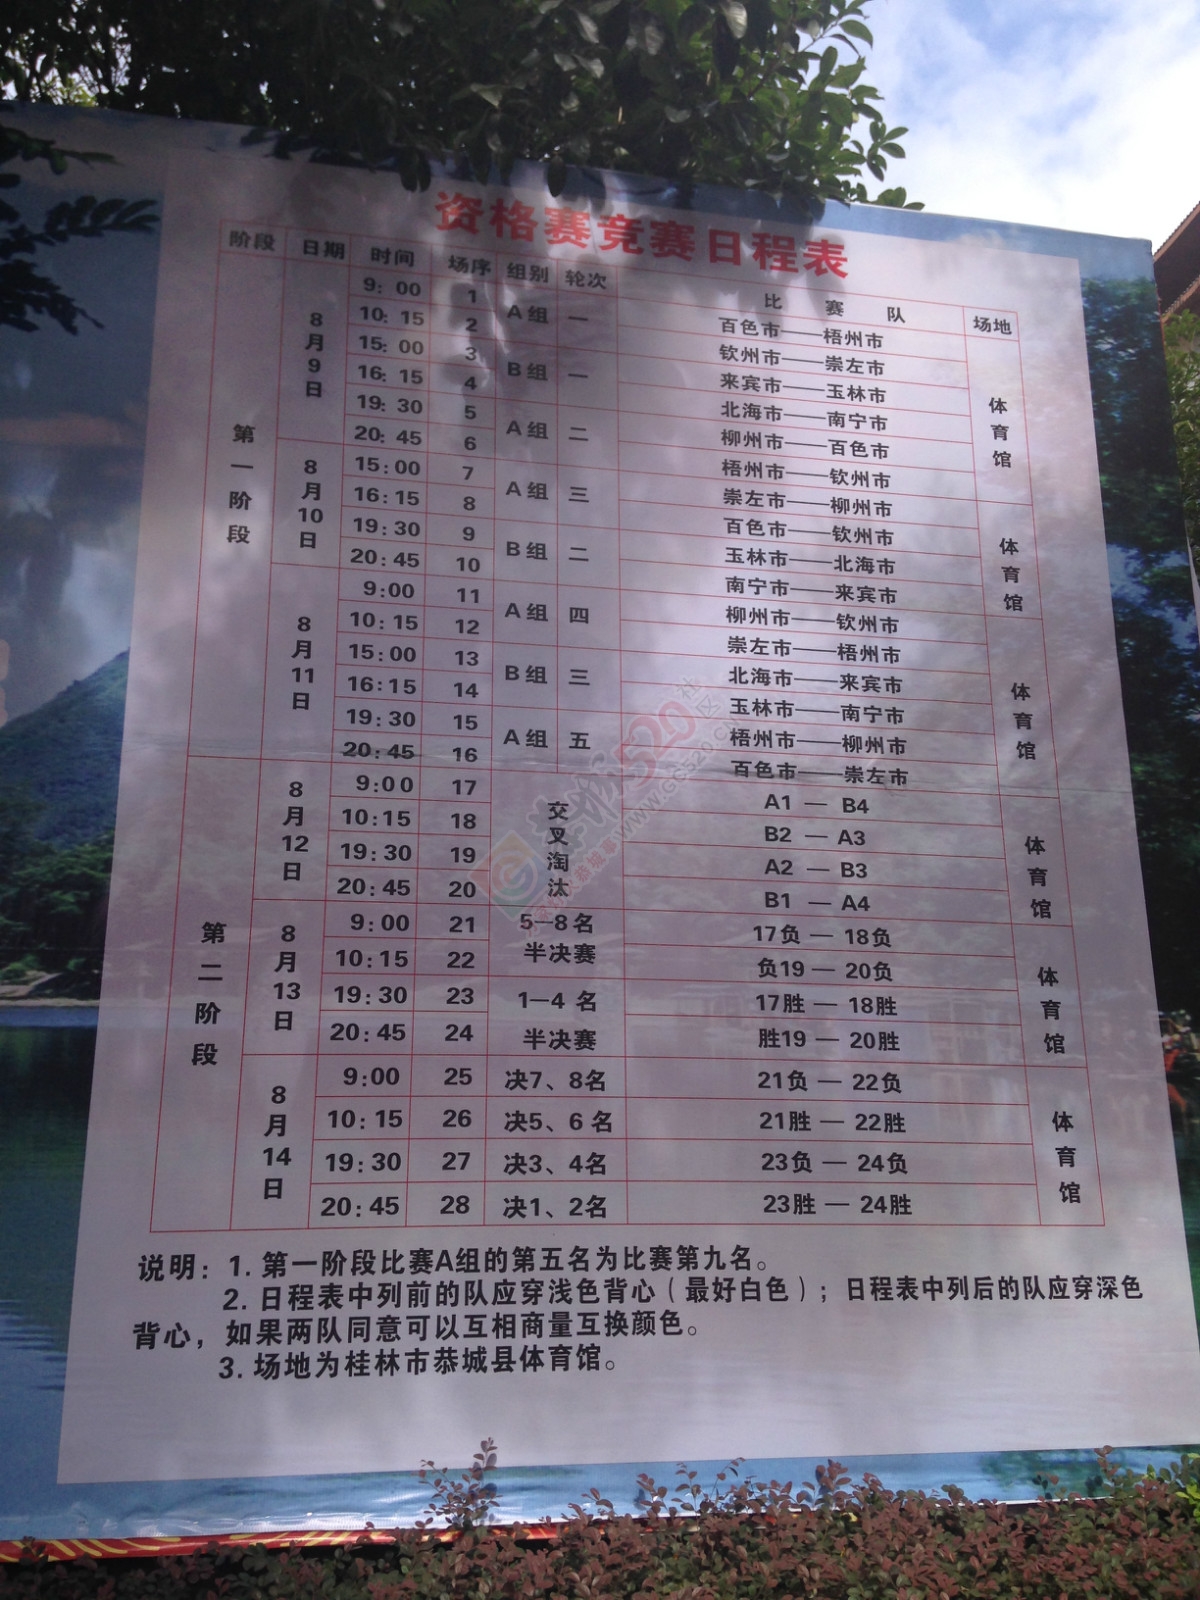 资格赛竞赛日程表
阶段 日期 时间 场序 组别 轮次 比赛队 场地
第一阶段 8月9日 9:00 1 A组 一 百色市——梧州市 体育馆
10:15 2 钦州市——崇左市
15:00 3 B组 一 来宾市——玉林市
16:15 4 北海市——南宁市
19:30 5 A组 二 柳州市——百色市
20:45 6 梧州市——钦州市
8月10日 15:00 7 A组 三 崇左市——柳州市 体育馆
16:15 8 百色市——钦州市
19:30 9 B组 二 玉林市——北海市
20:45 10 南宁市——来宾市
8月11日 9:00 11 A组 四 柳州市——钦州市 体育馆
10:15 12 崇左市——梧州市
15:00 13 B组 三 北海市——来宾市
16:15 14 玉林市——南宁市
19:30 15 A组 五 梧州市——柳州市
20:45 16 百色市——崇左市
第二阶段 8月12日 9:00 17 交叉淘汰 A1 — B4 体育馆
10:15 18 B2 — A3
19:30 19 A2 — B3
20:45 20 B1 — A4
8月13日 9:00 21 5—8名 17负 — 18负 体育馆
10:15 22 半决赛 负19 — 20负
19:30 23 1—4名 17胜 — 18胜
20:45 24 半决赛 胜19 — 20胜
8月14日 9:00 25 决7、8名 21负 — 22负 体育馆
10:15 26 决5、6名 21胜 — 22胜
19:30 27 决3、4名 23负 — 24负
20:45 28 决1、2名 23胜 — 24胜
说明：1.第一阶段比赛A组的第五名为比赛第九名。
2.日程表中列前的队应穿浅色背心（最好白色）；日程表中列后的队应穿深色
背心，如果两队同意可以互相商量互换颜色。
3.场地为桂林市恭城县体育馆。
恭城520社区
WWW.GC520.CN